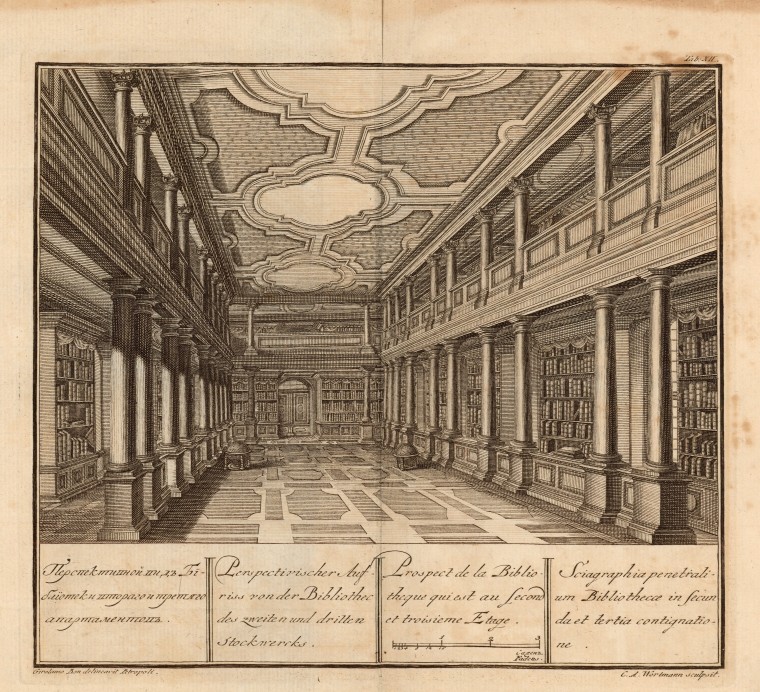 Tab. XII.
Перспективной видъ Би-
блїотеки втораго и третяго
апартаментовъ.
Perspectivischer Auf-
riss von der Bibliothec
des zweiten und dritten
Stockwercks.
Prospect de la Biblio-
theque qui est au second
et troisieme Etage.
Sciagraphia penetrali-
um Bibliothecæ in secun
da et tertia contignatio-
ne.
Girolamo Bon delineavit Petropoli.
C. A. Wörtmann sculpsit.